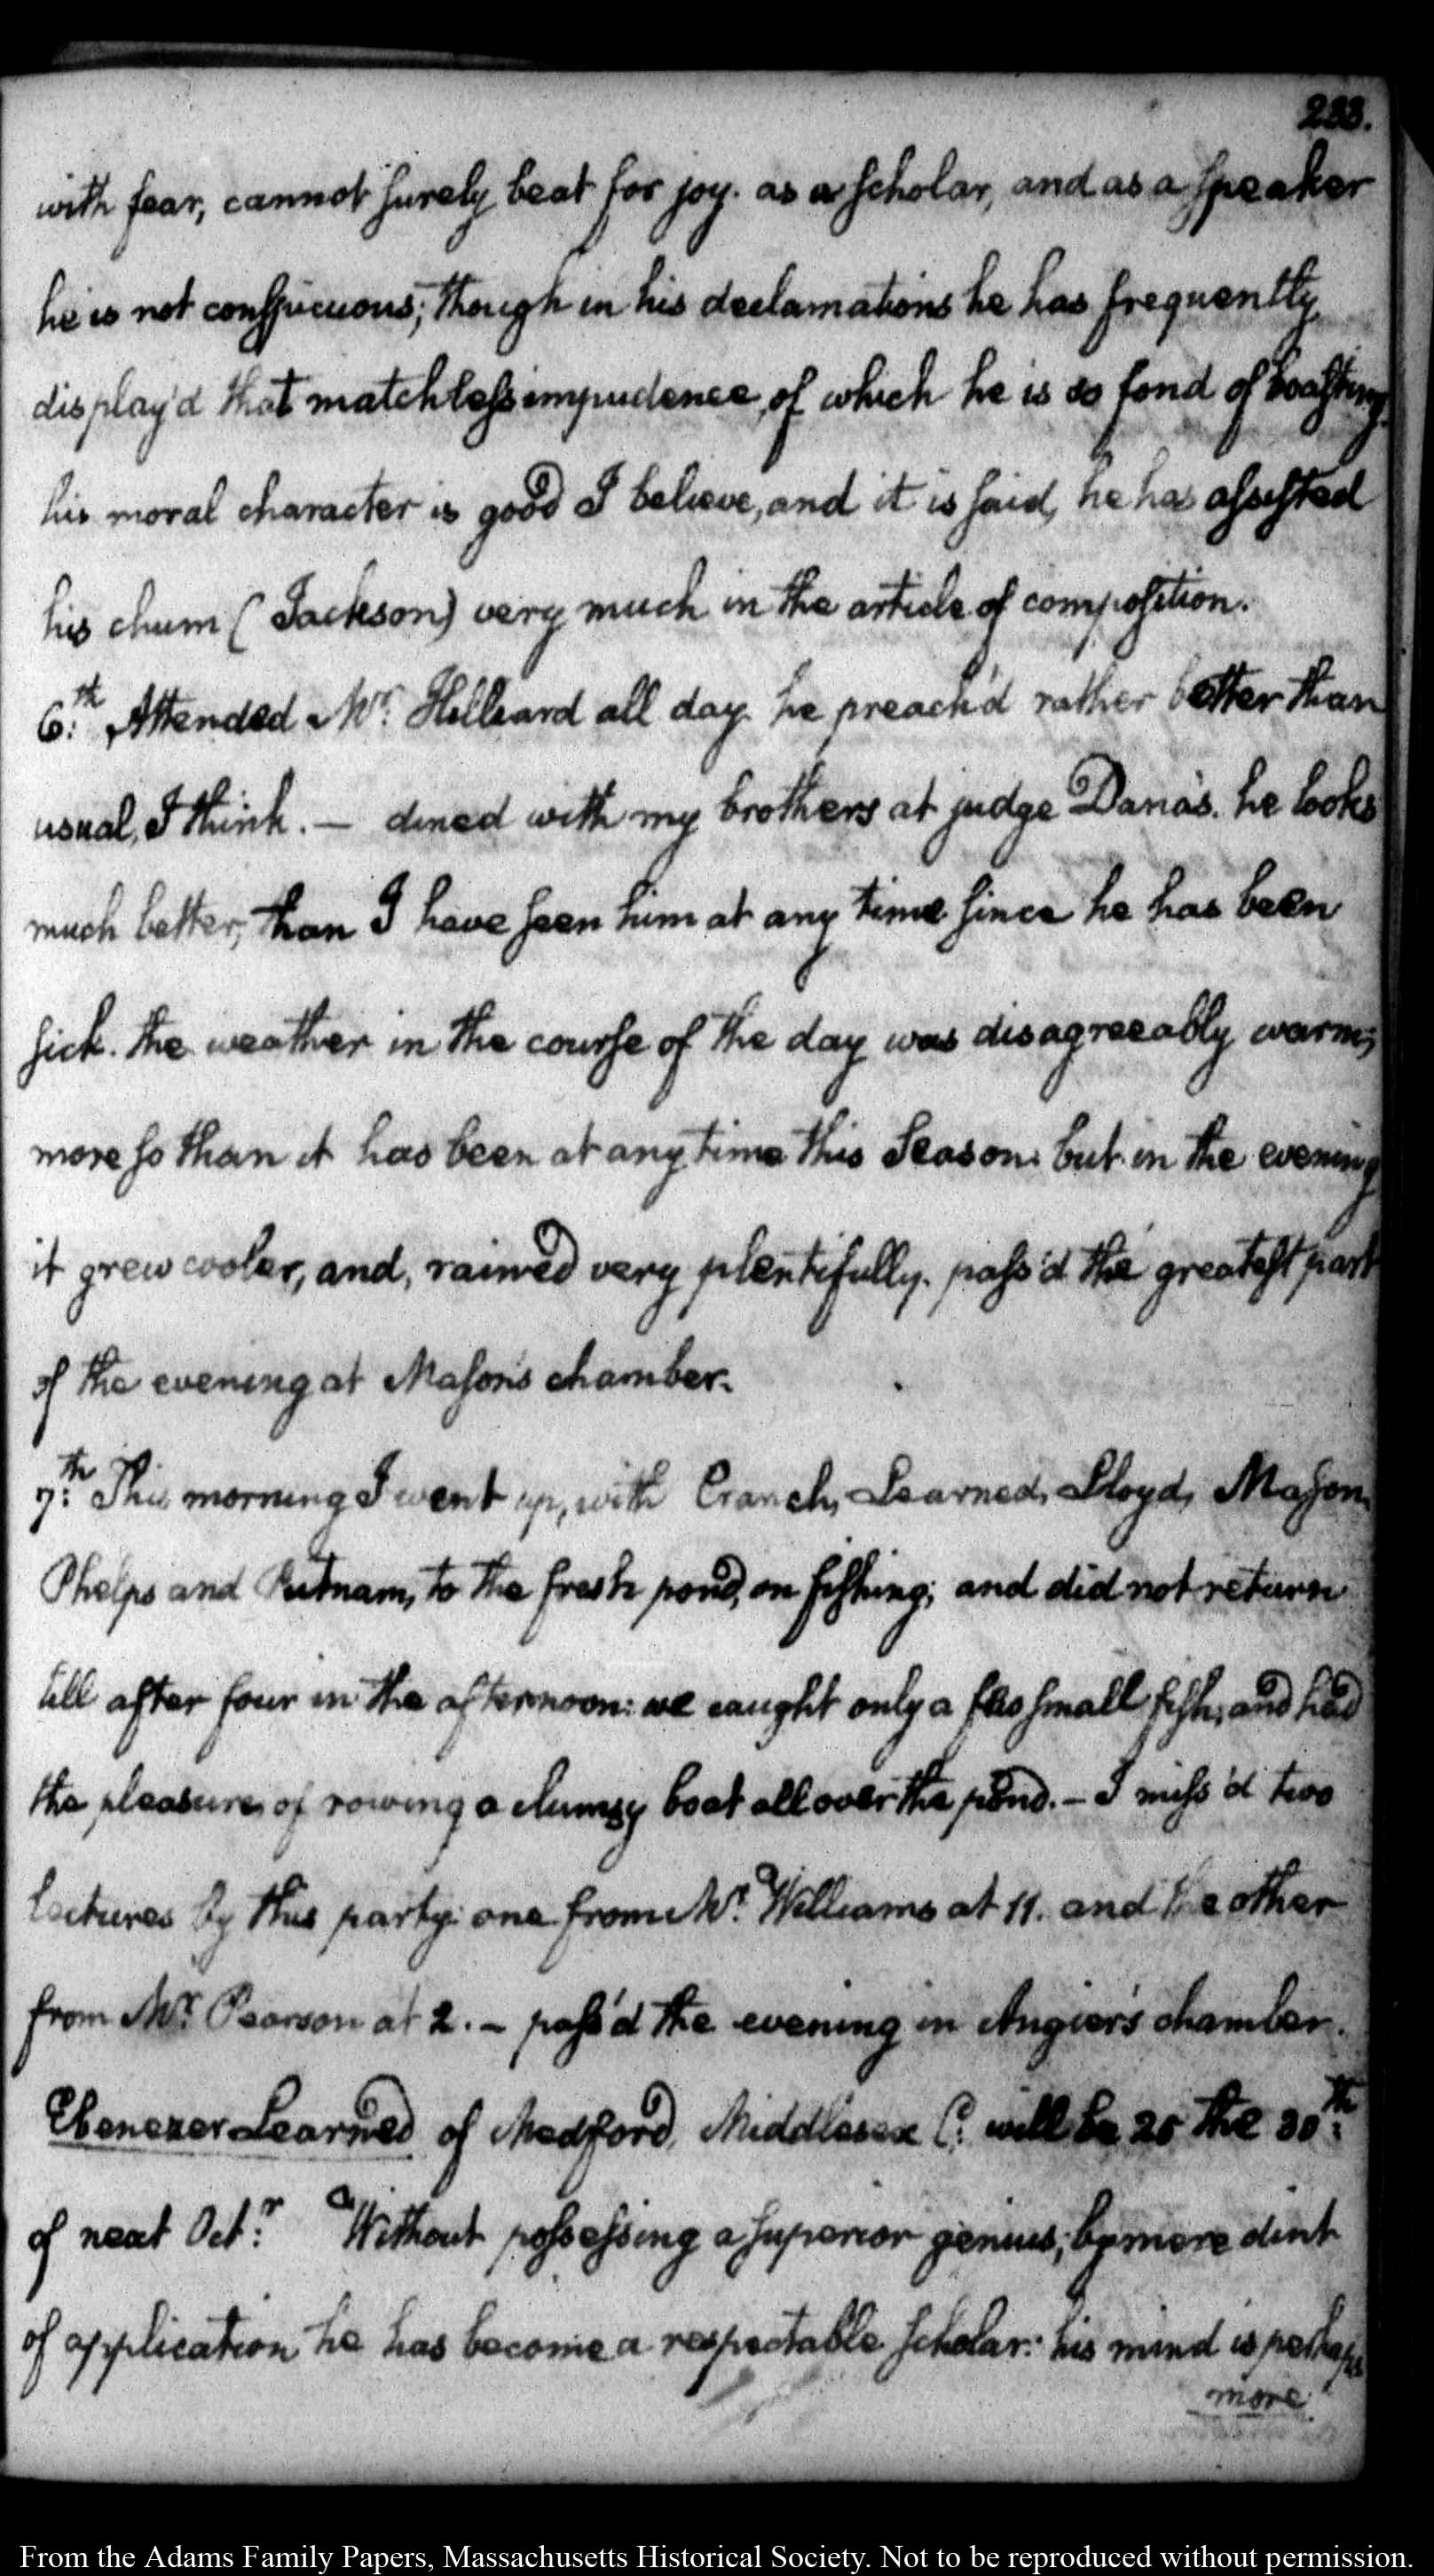 233.
with fear, cannot surely beat for joy. as a scholar, and as a speaker
he is not conspicuous; though in his declamations he has frequently
display'd that matchless impudence, of which he is so fond of boasting.
his moral character is good I believe, and it is said, he has assisted
his chum (Jackson) very much in the article of composition.
6:th Attended Mr. Hilliard all day. he preach'd rather better than
usual, I think. — dined with my brothers at judge Dana's. he looks
much better, than I have seen him at any time since he has been
sick. the weather in the course of the day was disagreeably warm;
more so than it has been at any time this Season. but in the evening
it grew cooler, and, rained very plentifully. pass'd the greatest part
of the evening at Mason's chamber.
7:th This morning I went up, with Cranch, Learned, Lloyd, Mason,
Phelps and Putnam, to the fresh pond, on fishing; and did not return
till after four in the afternoon: we caught only a few small fish, and had
the pleasure, of rowing a clumsy boat all over the pond. — I miss'd two
lectures by this party: one from Mr. Williams at 11. and the other
from Mr. Pearson at 2. — pass'd the evening in Angier's chamber.
Ebenezer Learned of Medford, Middlesex C: will be 25 the 30:th
of next Oct:r Without possessing a superior genius; by mere dint
of application he has become a respectable scholar: his mind is perhaps
more
From the Adams Family Papers, Massachusetts Historical Society. Not to be reproduced without permission.